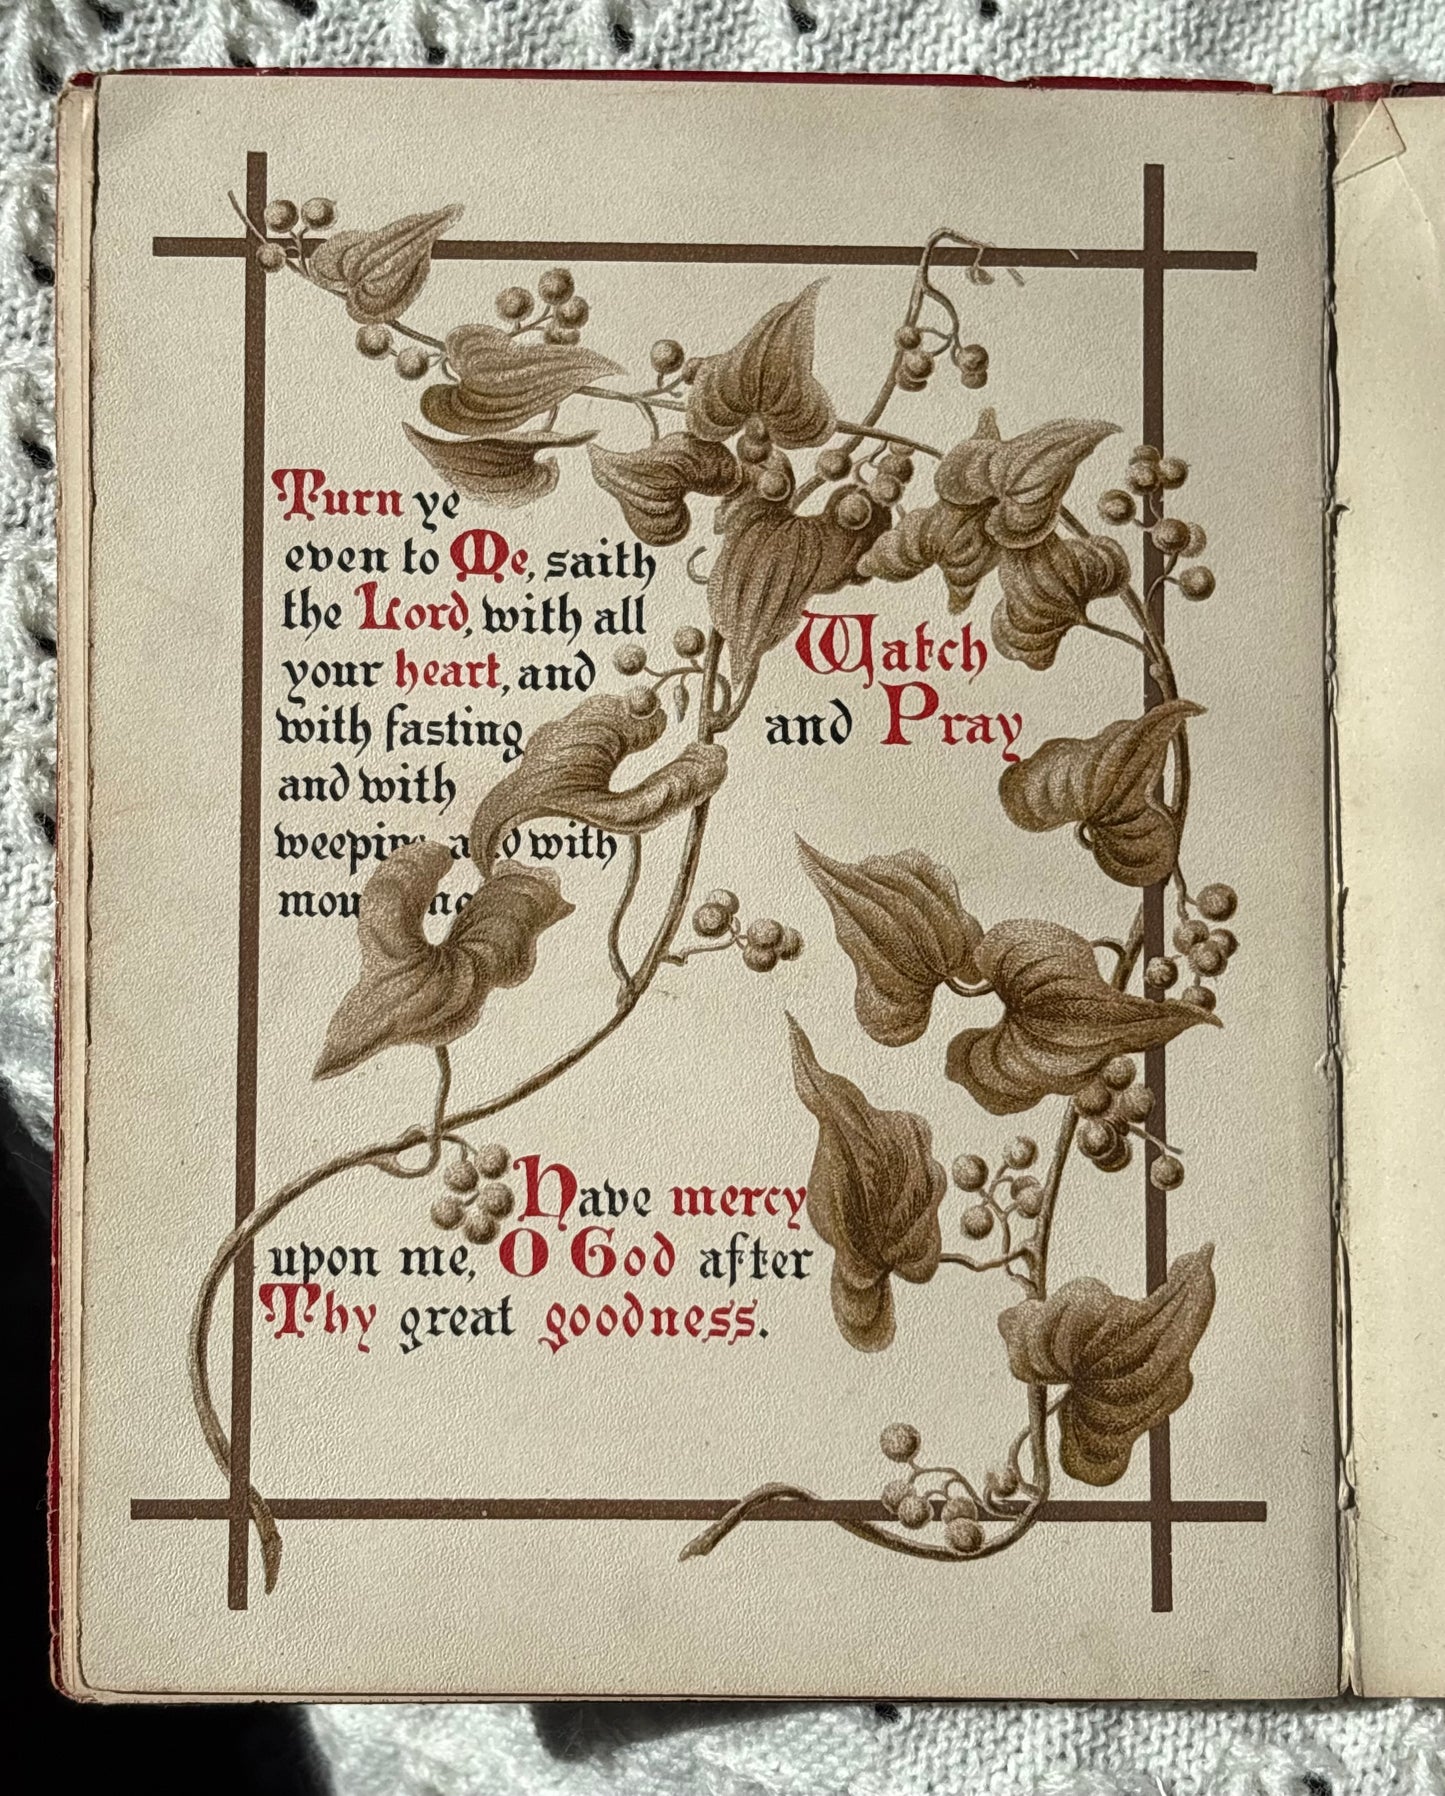 Turn ye
even to Me, saith
the Lord, with all
your heart, and
with fasting
and with
weeping and with
mourning
Watch
and Pray
Have mercy
upon me, O God after
Thy great goodness.